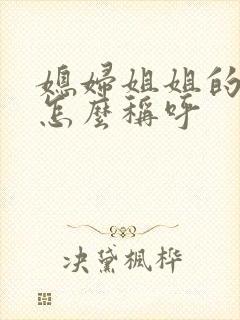 媳婦姐姐的
怎麼稱呼
决黛楓桦